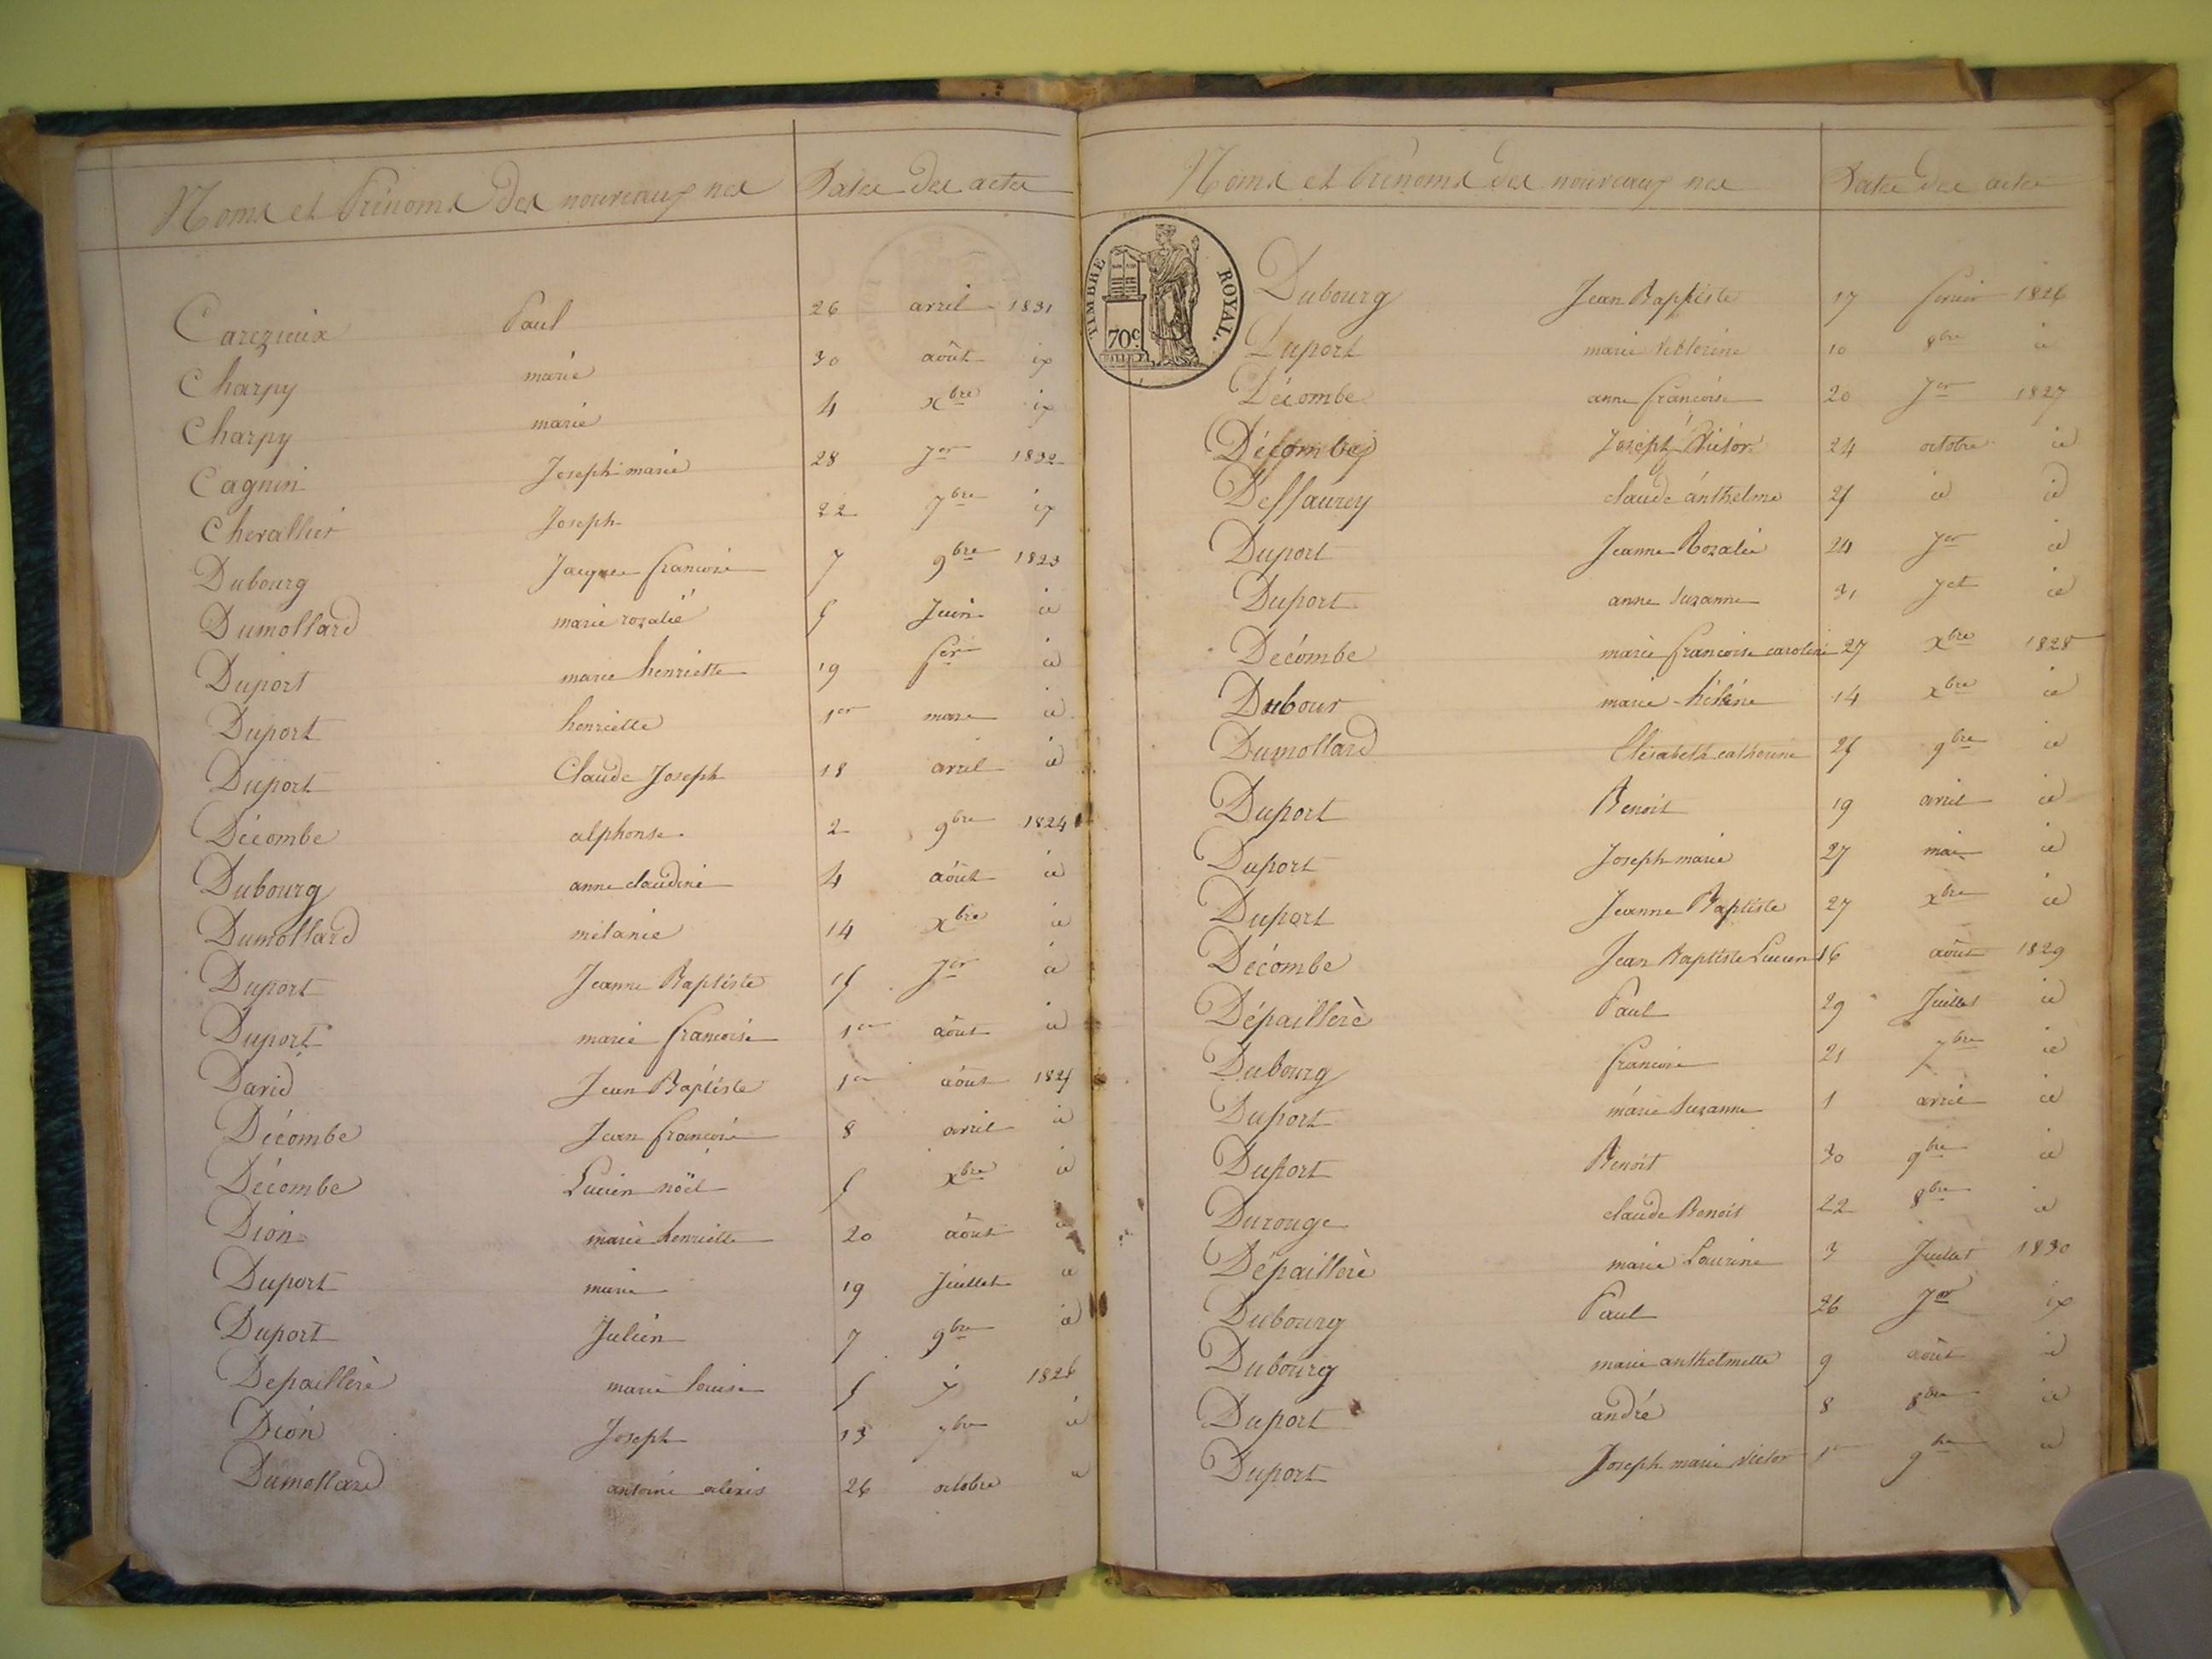 Noms et Prénoms des nouveaux nés Dates des actes
Carezieux Paul 26 avril 1831
Charpy marie 30 août id
Charpy marie 4 xbre id
Cagnin Joseph marie 28 Jer 1832
Chevallier Joseph 22 7bre id
Dubourg Jacques françois 7 9bre 1823
Dumollard marie rozalie 5 Juin id
Duport marie henriette 19 fer id
Duport henriette 1er mars id
Duport Claude Joseph 18 avril id
Décombe alphonse 2 9bre 1824
Dubourg anne claudine 4 août id
Dumollard mélanie 14 xbre id
Duport Jeanne Baptiste 15 Jer id
Duport marie françoise 1er août id
David Jean Baptiste 1er août 1825
Décombe Jean françois 8 avril id
Décombe Lucien noël 5 xbre id
Dion marie henriette 20 août id
Duport marie 19 Juillet id
Duport Julien 7 9bre id
Depaillère marie louise 5 1826
Dion Joseph 13 id
Dumollard antoine alexis 26 octobre id
Noms et Prénoms des nouveaux nés Dates des actes
TIMBRE ROYAL.
70c.
Dubourg Jean Baptiste 17 fevrier 1826
Duport marie Victorine 10 8bre id
Décombe anne françoise 20 Jer 1827
Décombe Joseph Victor 24 octobre id
Dessaurey claude anthelme 25 id id
Duport Jeanne Rozalie 24 Jer id
Duport anne suzanne 31 Jet id
Décombe marie françoise caroline 27 xbre 1828
Dubour marie hélène 14 xbre id
Dumollard Elisabeth catherine 25 9bre id
Duport Benoit 19 avril id
Duport Joseph marie 27 mai id
Duport Jeanne Baptiste 27 xbre id
Décombe Jean Baptiste Lucien 16 août 1829
Dépaillère Paul 29 Juillet id
Dubourg françois 21 7bre id
Duport marie Suzanne 1 avril id
Duport Benoit 30 9bre id
Durouge claude Benoit 22 8bre id
Dépaillère marie Laurine 3 Juillet 1830
Dubourg Paul 26 Jer id
Dubourg marie anthelmette 9 août id
Duport andré 8 8bre id
Duport Joseph marie Victor 1er 9bre id